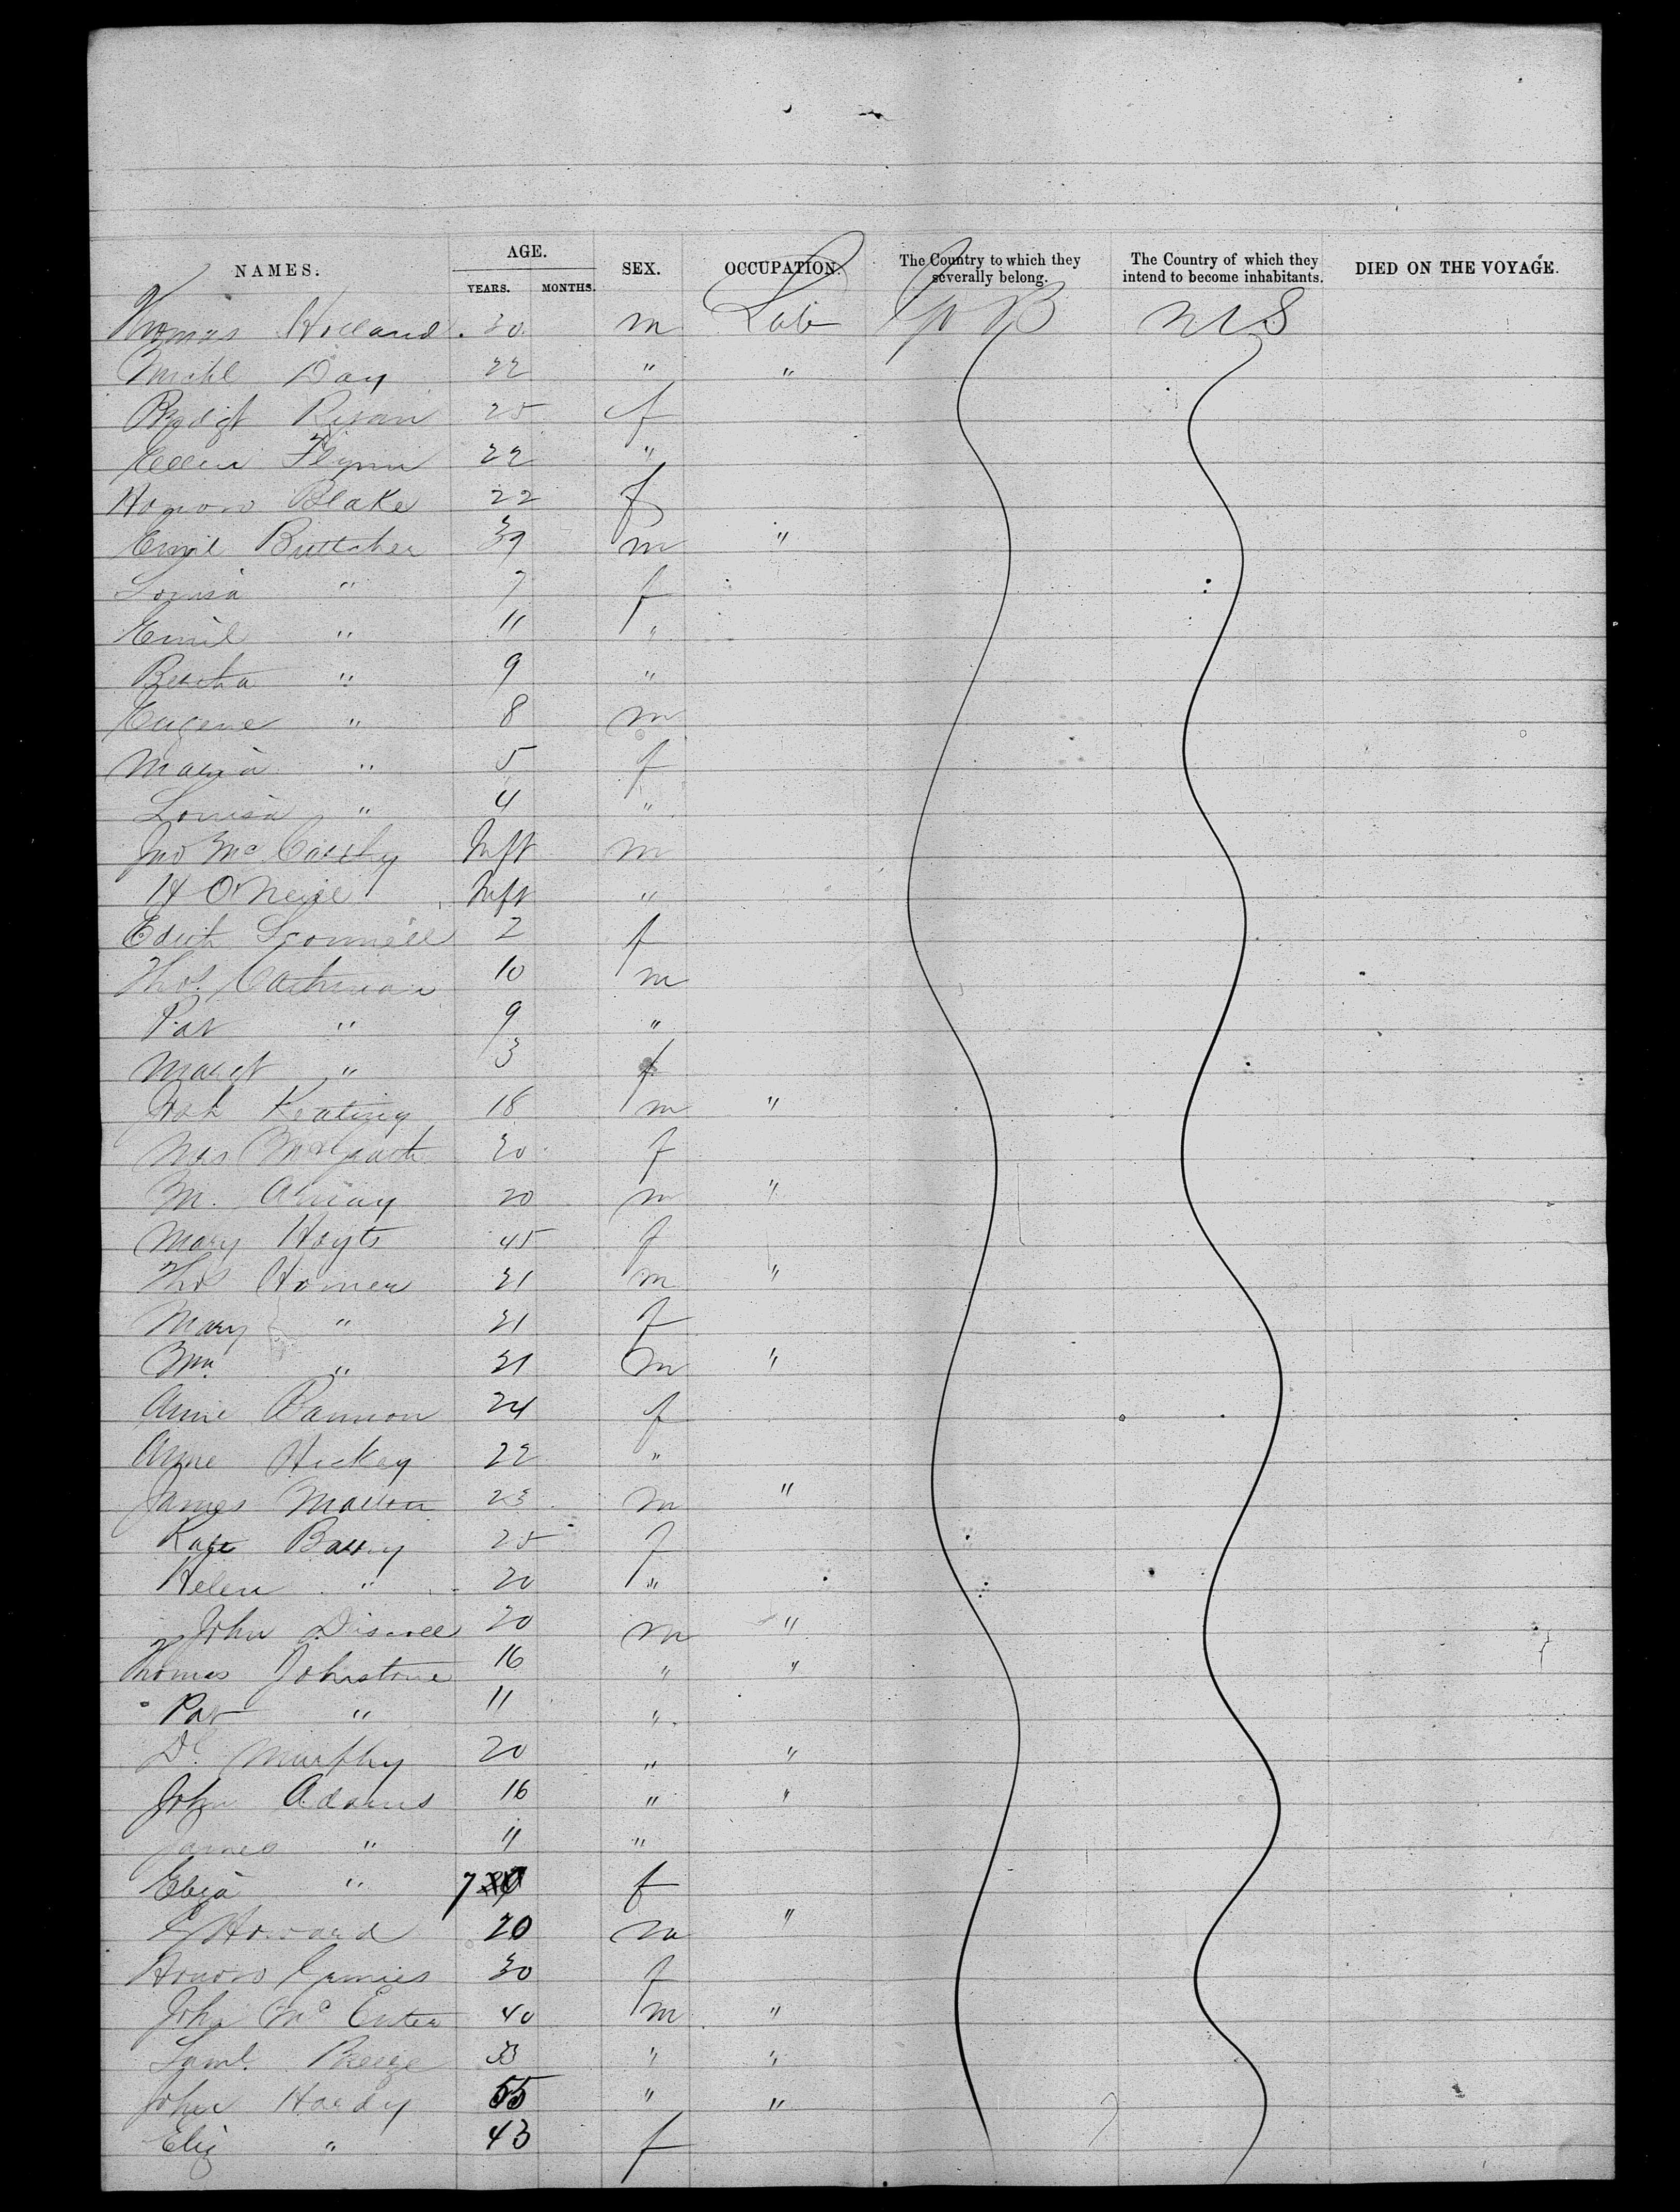 NAMES. AGE. SEX. OCCUPATION. The Country to which they severally belong. The Country of which they intend to become inhabitants. DIED ON THE VOYAGE.
YEARS. MONTHS.
Thomas Holland 30 m Lab G B U S
Michl Day 22 " "
Bridgt Ryan 25 f
Ellen Flynn 22 "
Honora Blake 22 f
Emil Buttcher 39 m "
Louisa " 7 f
Emil " 11 "
Bertha " 9 "
Eugene " 8 m
Maria " 5 f
Louisa " 4 "
Jno McCarthy Inft m
H O'Neill Inft "
Edith 2 f
Thos. 10 m
Pat " 9 "
Margt " 3 f
Josh Keating 18 m "
Mrs McGrath 30 f
M. 20 m "
Mary Hoyts 45 f
Thos Homer 21 m "
Mary " 21 f
Wm. " 21 m "
Anne Bannon 24 f
Anne Hickey 22 "
James Mallon 23 m "
Kate Barry 25 f
Helen " 20 "
John Discoll 20 m "
Thomas Johnstone 16 " "
Pat " 11 "
Dl. Murphy 20 " "
John Adams 16 " "
James " 11 "
Eliza " 7 f
Howard 20 m "
Honora 30 f
John McEntee 40 m "
Saml. Breeze 33 " "
John Hardy 55 " "
Eliz " 43 f